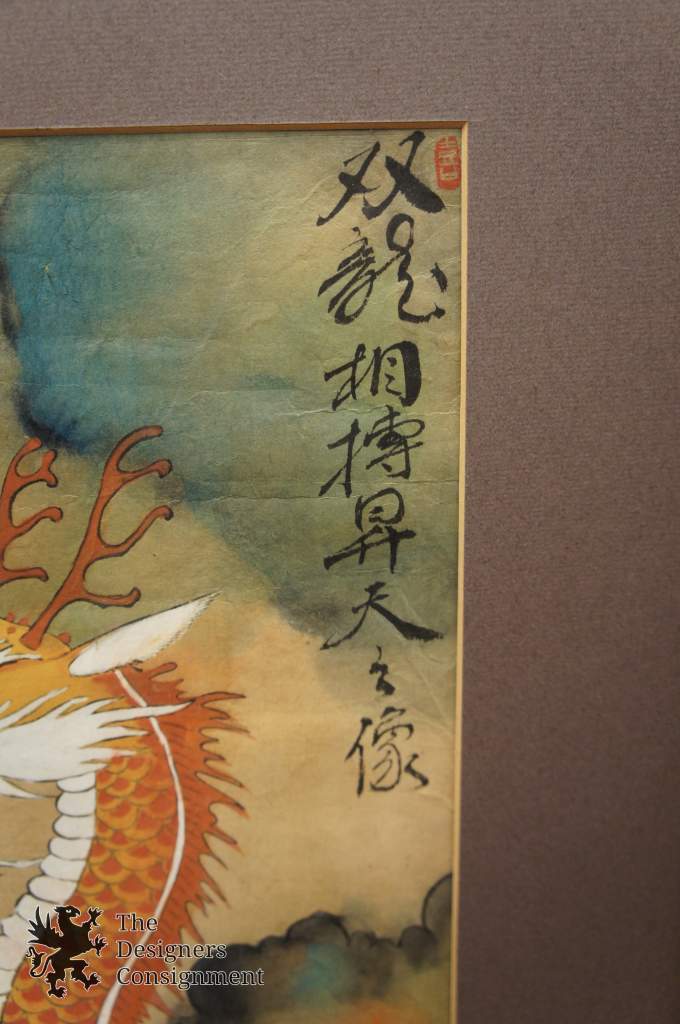 双龍相搏昇天之像
The
Designers
Consignment